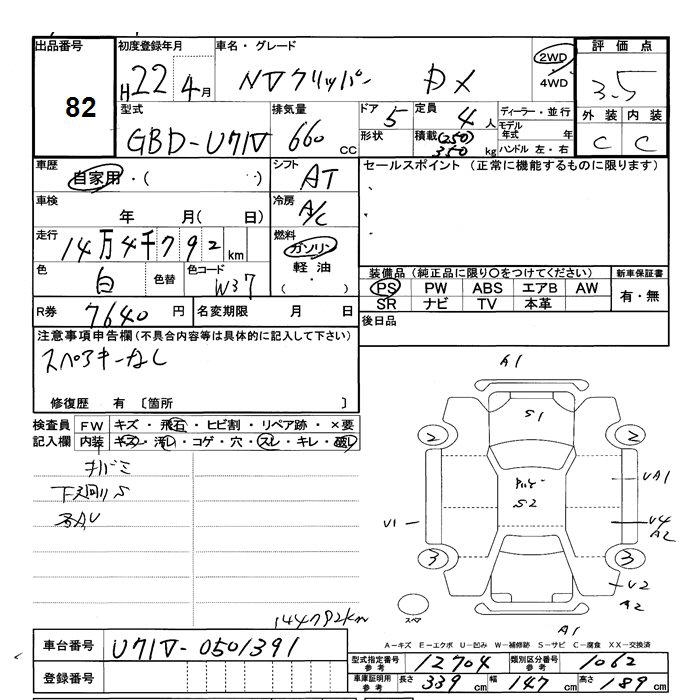 出品番号
82
初度登録年月
H22年4月
車名・グレード
NVクリッパー DX
2WD
4WD
評価点
3.5
外装 内装
C C
型式
GBD-U71V
排気量
660 CC
ドア 5
形状
定員 4人
積載 (250)
350 kg
ディーラー・並行
モデル年式 年
ハンドル 左・右
車歴
自家用・( )
シフト
AT
セールスポイント (正常に機能するものに限ります)
車検
年 月( 日)
冷房
A/C
走行
14万4千792km
燃料
ガソリン
軽油
( ・ )
色
白
色替
色コード
W37
装備品 (純正品に限り○をつけてください)
PS PW ABS エアB AW
SR ナビ TV 本革
新車保証書
有・無
R券
7640円
名変期限 月 日
後日品
注意事項申告欄(不具合内容等は具体的に記入して下さい)
スペアキーなし
修復歴 有 〔箇所 〕
検査員 FW キズ・飛石・ヒビ割・リペア跡・×要
記入欄 内装 キズ・汚レ・コゲ・穴・スレ・キレ・破レ
下廻りS
A1
S1
2 2
UA1
S2
U1
U4
A2
3 3
U2
A2
スペア
A1
144792km
A−キズ E−エクボ U−凹み W−補修跡 S−サビ C−腐食 XX−交換済
車台番号
U71V-0501391
型式指定番号 参考 12704
類別区分番号 参考 1062
登録番号
車庫証明用 参考
長さ 339cm
幅 147cm
高さ 189cm